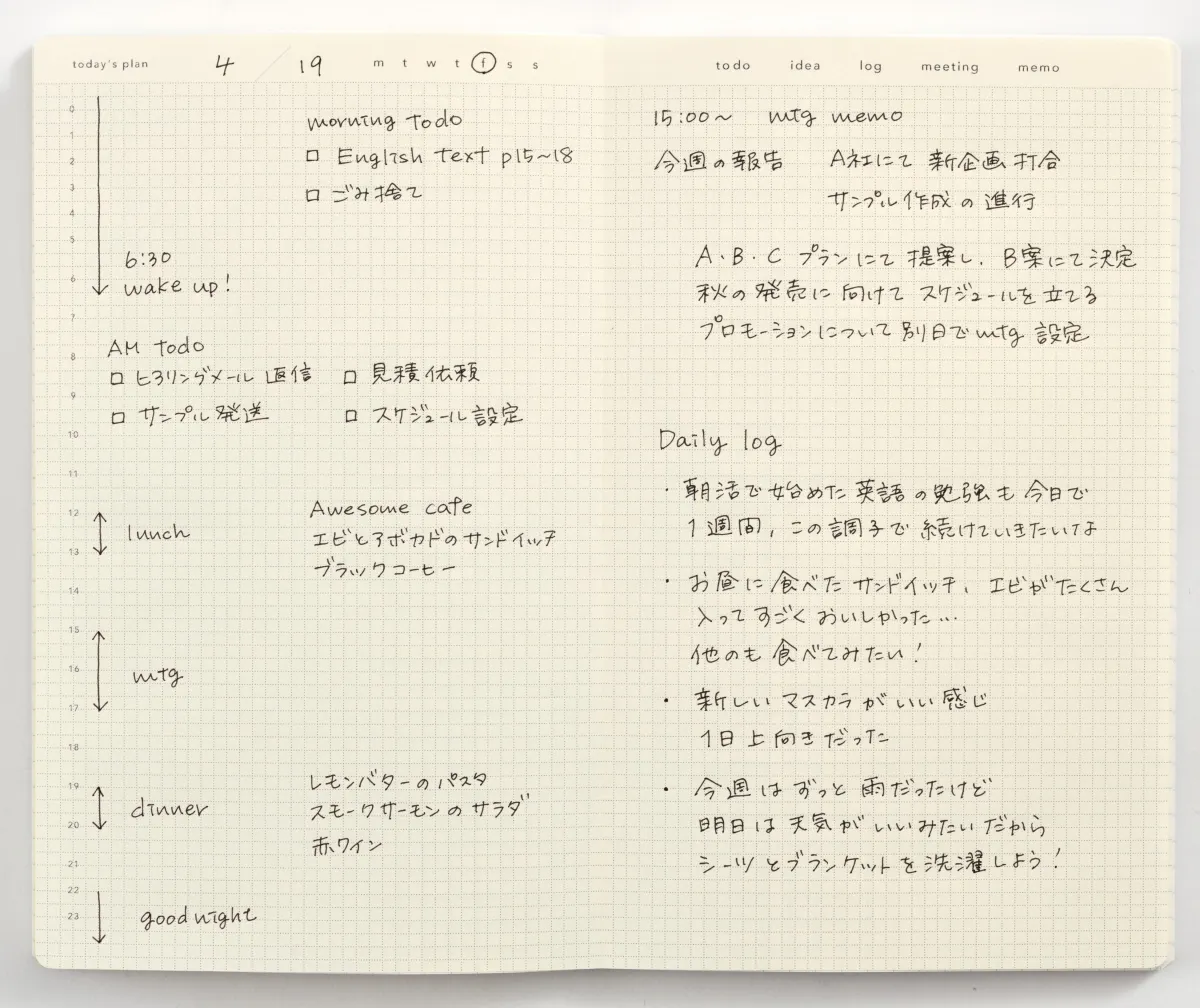 today's plan 4 / 19 m t w t f s s
0
1
2
3
4
5
6
7
8
9
10
11
12
13
14
15
16
17
18
19
20
21
22
23
morning todo
□ English text p15~18
□ ごみ捨て
6:30
wake up!
AM todo
□ ヒアリングメール 返信 □ 見積依頼
□ サンプル発送 □ スケジュール設定
lunch
Awesome cafe
エビとアボカドのサンドイッチ
ブラックコーヒー
mtg
dinner
レモンバターのパスタ
スモークサーモンのサラダ
赤ワイン
good night
todo idea log meeting memo
15:00~ mtg memo
今週の報告 A社にて 新企画 打合
サンプル作成の進行
A・B・C プランにて 提案し、B案にて決定
秋の発売に向けて スケジュールを立てる
プロモーションについて 別日でmtg 設定
Daily log
・朝活で始めた英語の勉強も今日で
1週間, この調子で続けていきたいな
・お昼に食べたサンドイッチ、エビがたくさん
入ってすごくおいしかった…
他のも食べてみたい!
・新しいマスカラがいい感じ
1日上向きだった
・今週はずっと雨だったけど
明日は天気がいいみたいだから
シーツとブランケットを洗濯しよう!